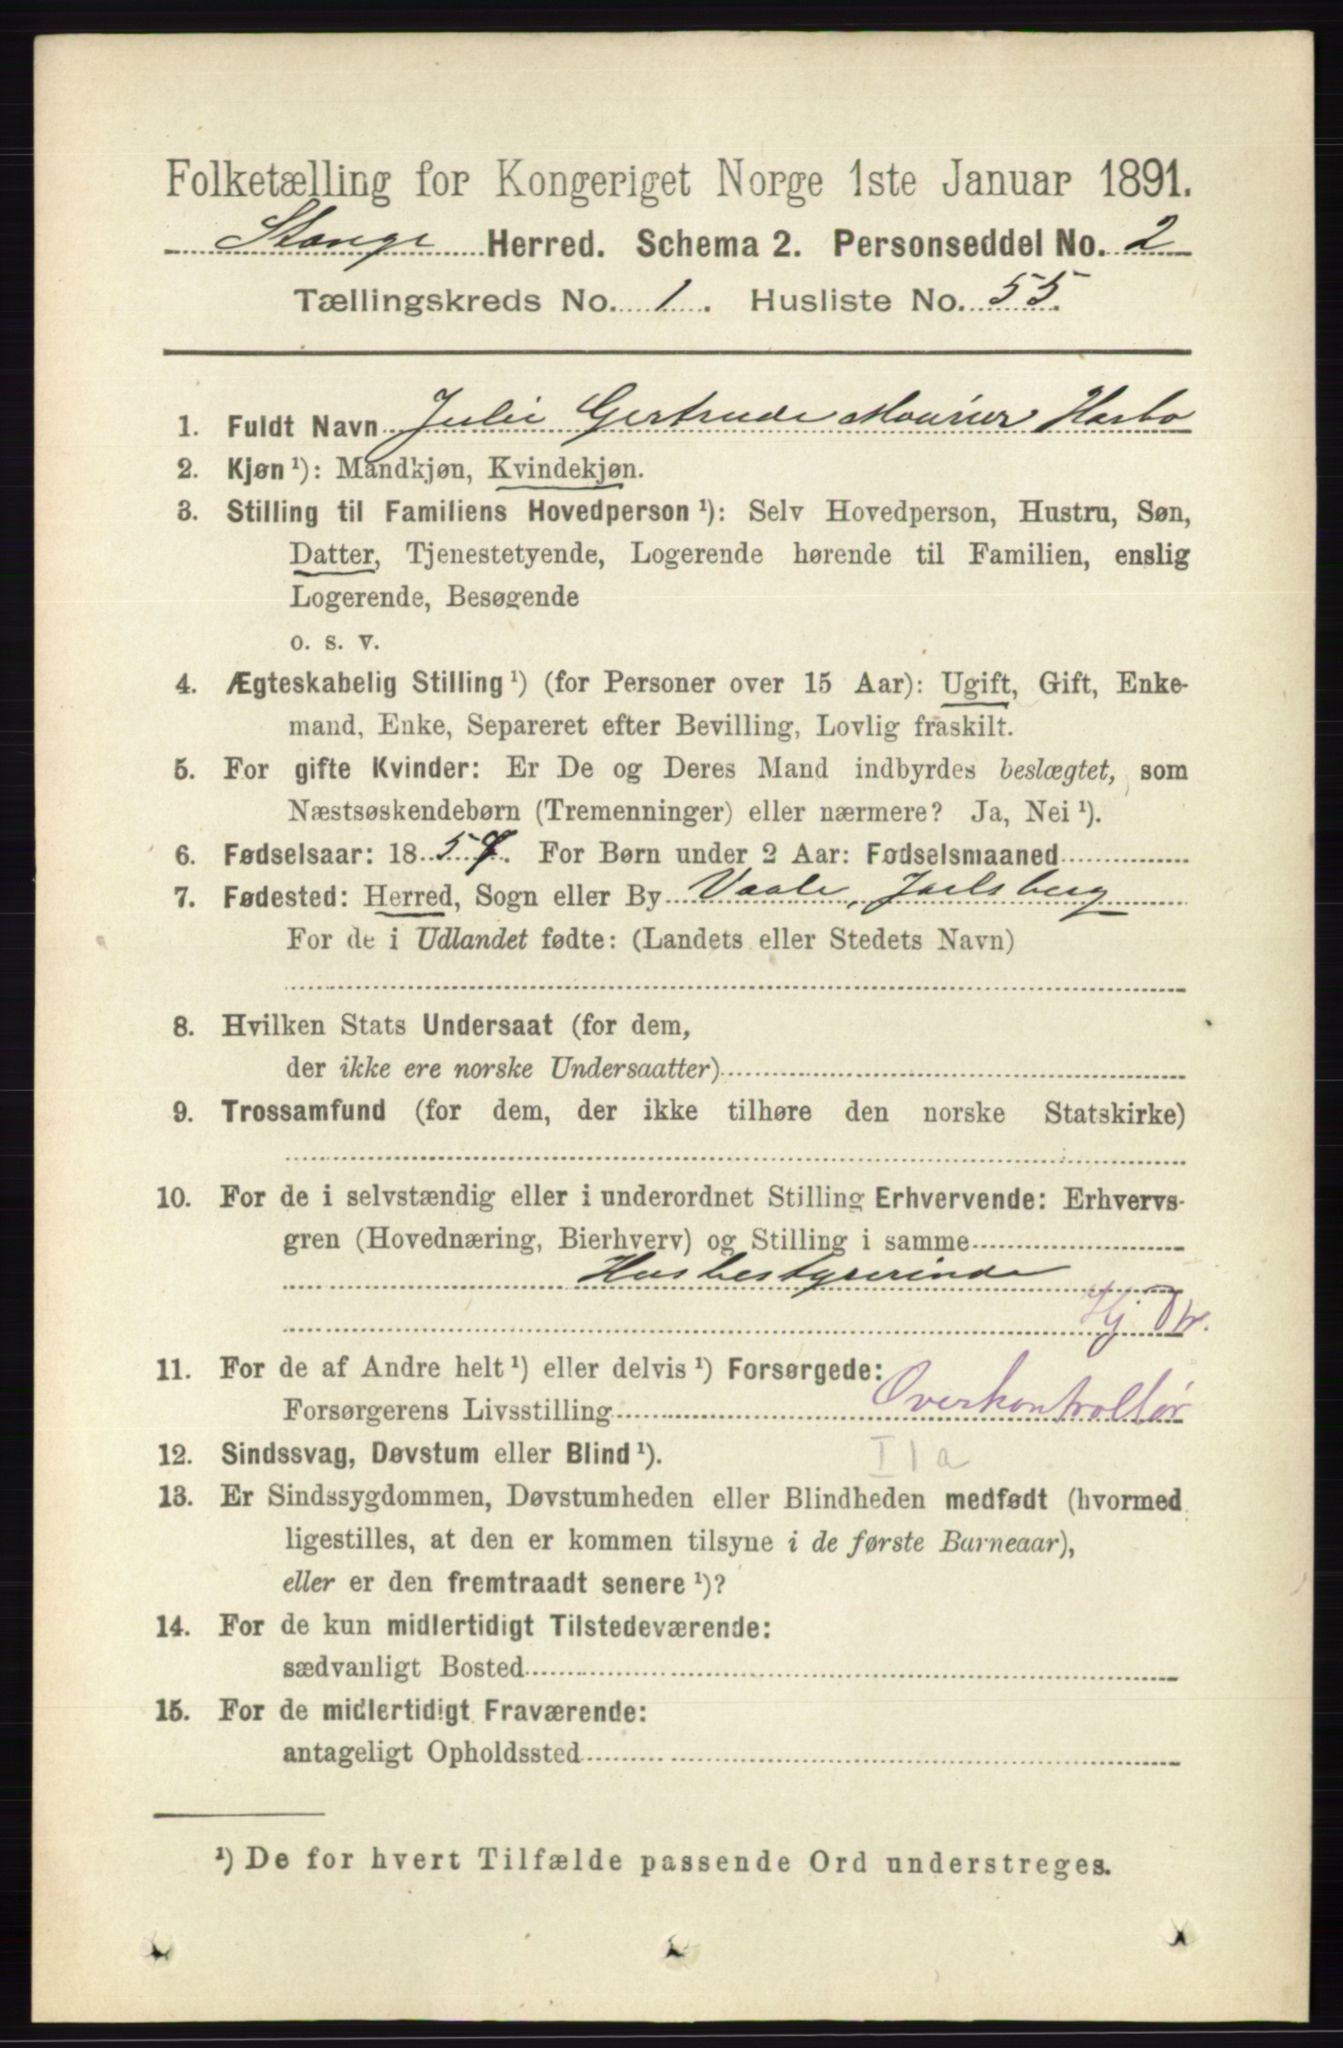 Folketælling for Kongeriget Norge 1ste Januar 1891.
Stange Herred. Schema 2. Personseddel No. 2
Tællingskreds No. 1. Husliste No. 55.
1. Fuldt Navn Julie Gertrude Mourier Harbo
2. Kjøn ¹): Mandkjøn, Kvindekjøn.
3. Stilling til Familiens Hovedperson ¹): Selv Hovedperson, Hustru, Søn,
Datter, Tjenestetyende, Logerende hørende til Familien, enslig
Logerende, Besøgende
o. s. v.
4. Ægteskabelig Stilling ¹) (for Personer over 15 Aar): Ugift, Gift, Enke-
mand, Enke, Separeret efter Bevilling, Lovlig fraskilt.
5. For gifte Kvinder: Er De og Deres Mand indbyrdes beslægtet, som
Næstsøskendebørn (Tremenninger) eller nærmere? Ja, Nei ¹).
6. Fødselsaar: 1857. For Børn under 2 Aar: Fødselsmaaned
7. Fødested: Herred, Sogn eller By Vaale, Jarlsberg
For de i Udlandet fødte: (Landets eller Stedets Navn)
8. Hvilken Stats Undersaat (for dem,
der ikke ere norske Undersaatter)
9. Trossamfund (for dem, der ikke tilhøre den norske Statskirke)
10. For de i selvstændig eller i underordnet Stilling Erhvervende: Erhvervs-
gren (Hovednæring, Bierhverv) og Stilling i samme
Husbestyrerinde
Hj Dtr.
11. For de af Andre helt ¹) eller delvis ¹) Forsørgede:
Forsørgerens Livsstilling Overkontrollør
12. Sindssvag, Døvstum eller Blind ¹). IIa
13. Er Sindssygdommen, Døvstumheden eller Blindheden medfødt (hvormed
ligestilles, at den er kommen tilsyne i de første Barneaar),
eller er den fremtraadt senere ¹)?
14. For de kun midlertidigt Tilstedeværende:
sædvanligt Bosted
15. For de midlertidigt Fraværende:
antageligt Opholdssted
¹) De for hvert Tilfælde passende Ord understreges.